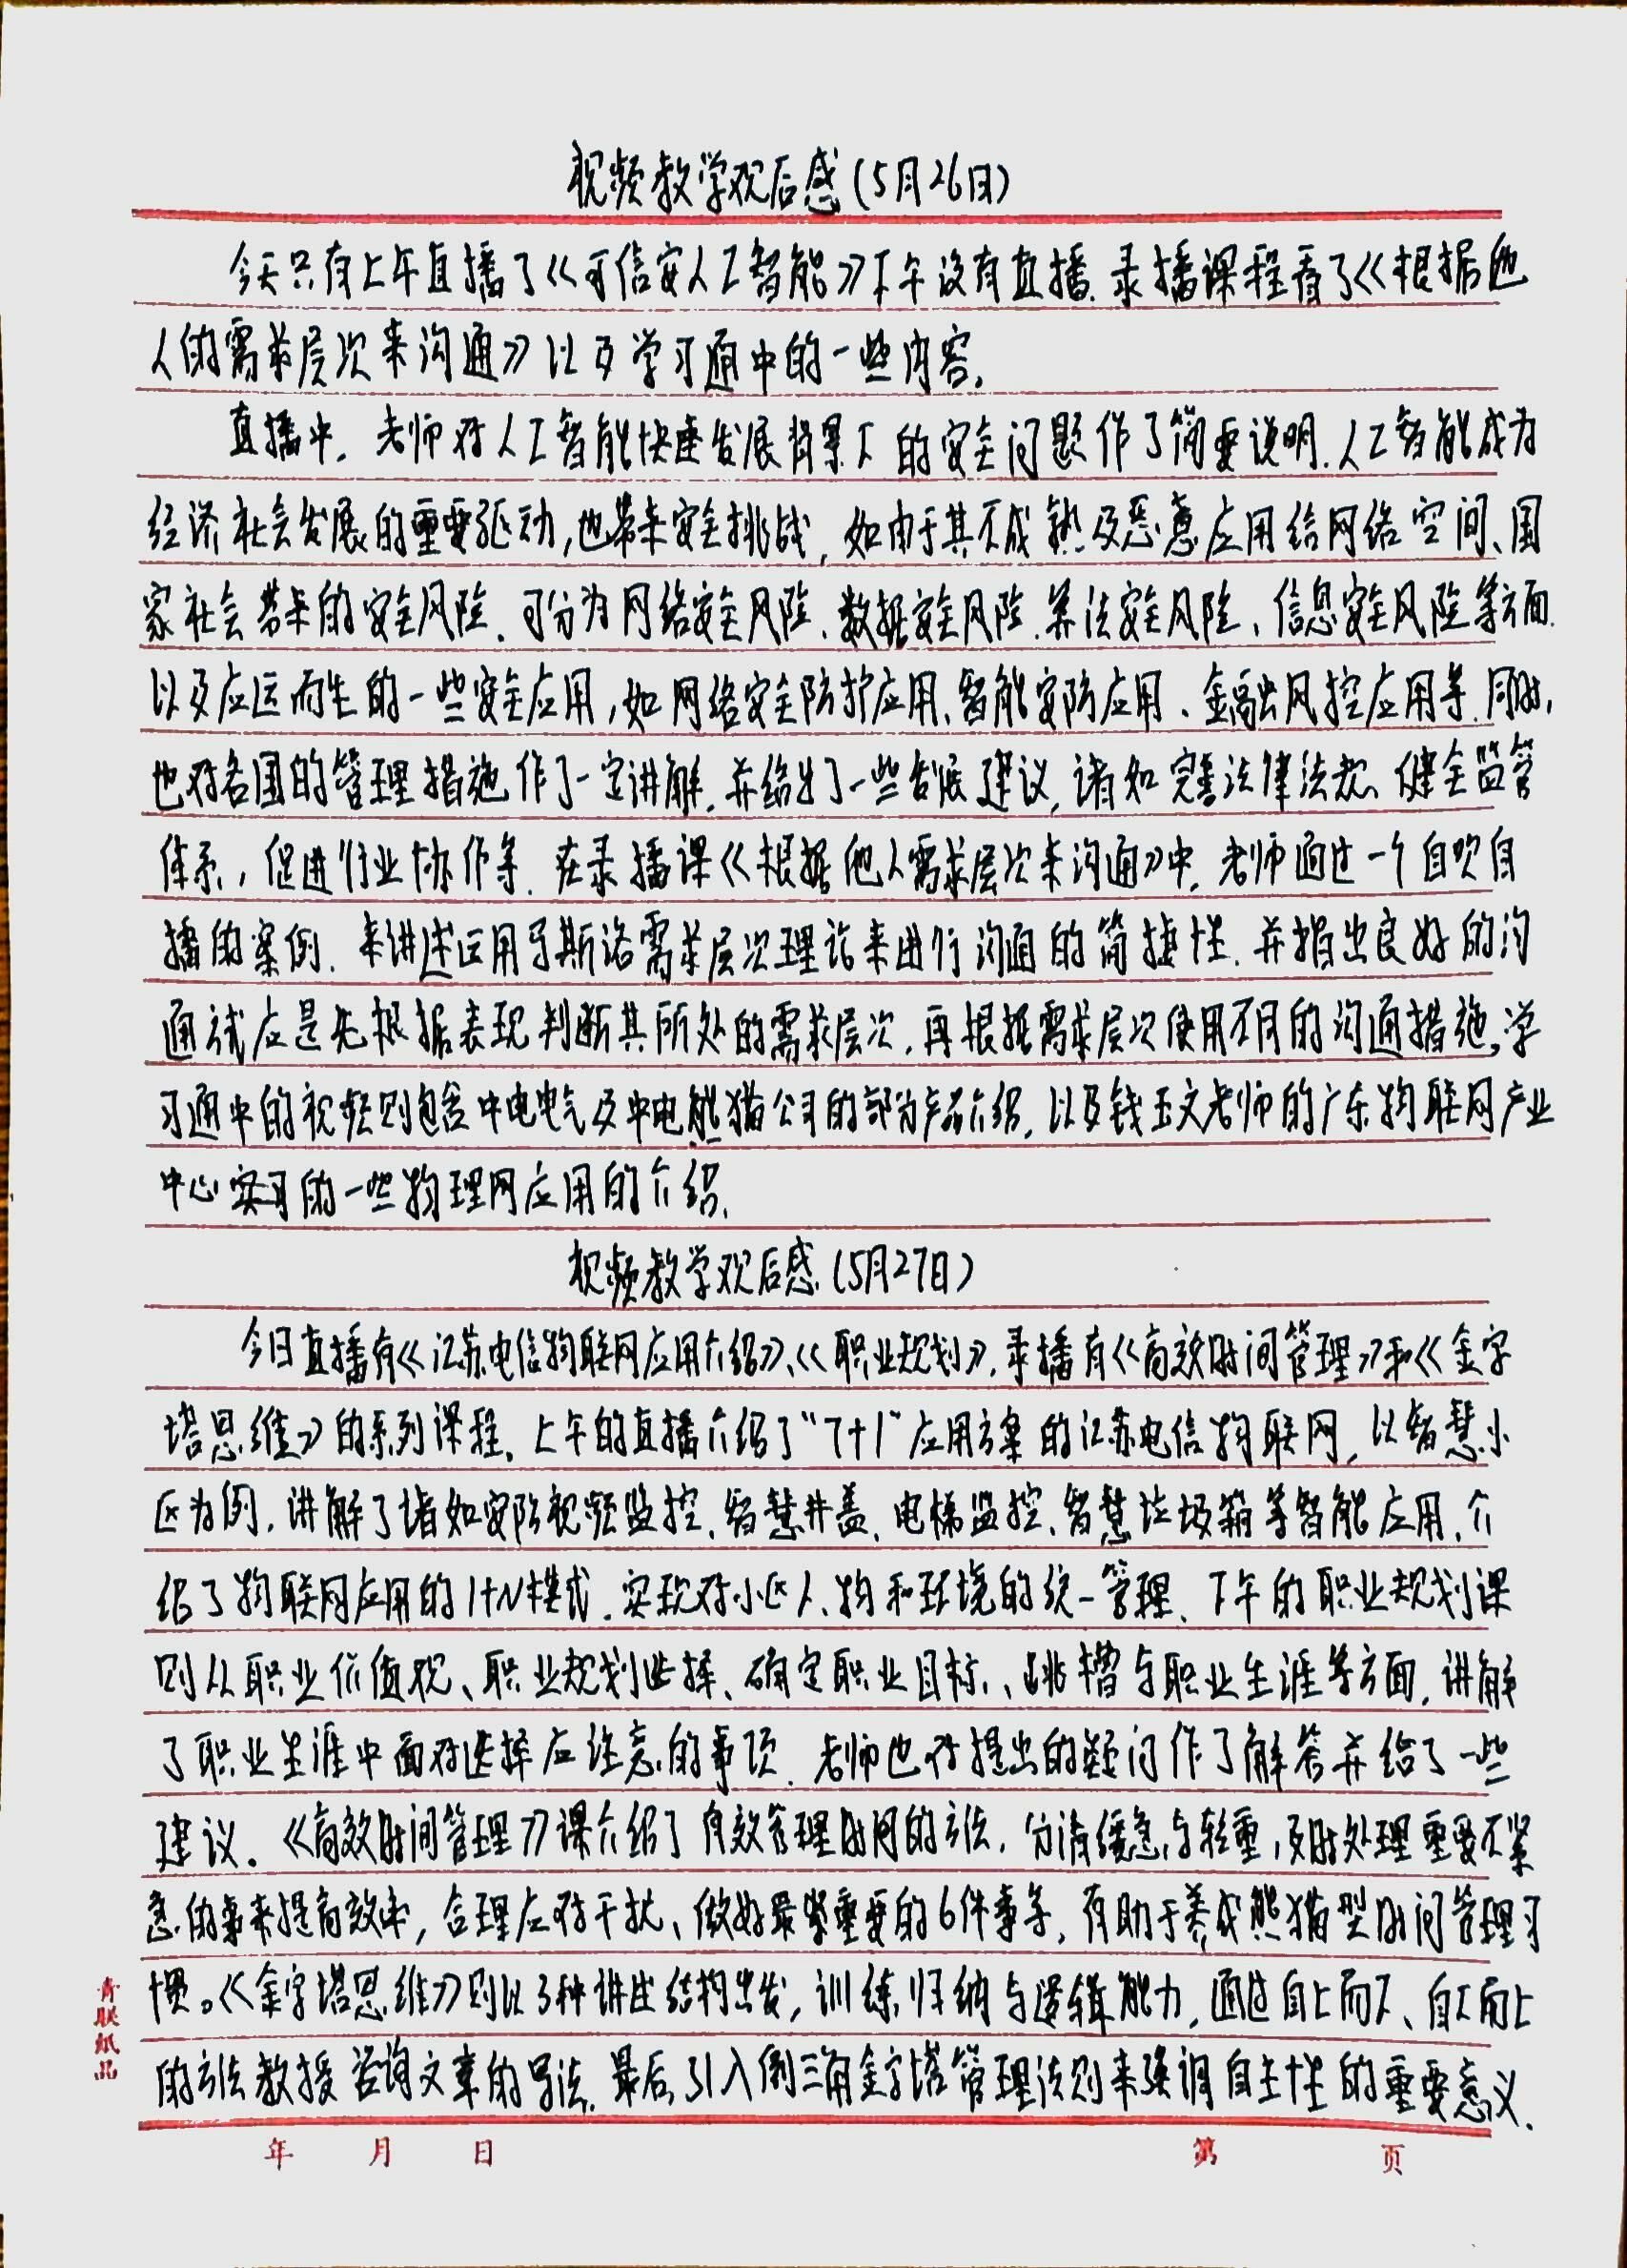 视频教学观后感(5月26日)
今天只有上午直播了《可信安人工智能》下午没有直播.录播课程看了《根据他
人的需求层次来沟通》以及学习通中的一些内容.
直播中,老师对人工智能快速发展背景下的安全问题作了简要说明.人工智能成为
经济社会发展的重要驱动,也带来安全挑战,如由于其不成熟及恶意应用给网络空间、国
家社会带来的安全风险.可分为网络安全风险、数据安全风险、算法安全风险、信息安全风险等方面.
以及应运而生的一些安全应用,如网络安全防护应用、智能安防应用、金融风控应用等.同时,
也对各国的管理措施作了一定讲解,并给出了一些发展建议,诸如完善法律法规、健全监管
体系,促进行业协作等.在录播课《根据他人需求层次来沟通》中,老师通过一个自吹自
播的案例.来讲述运用马斯洛需求层次理论来进行沟通的简捷性.并指出良好的沟
通试应是先根据表现判断其所处的需求层次,再根据需求层次使用不同的沟通措施,学
习通中的视频则包含中电电气及中电熊猫公司的部分产品介绍,以及钱玉文老师的广东物联网产业
中心实习的一些物理网应用的介绍.
视频教学观后感(5月27日)
今日直播有《江苏电信物联网应用介绍》、《职业规划》,录播有《高效时间管理》和《金字
塔思维》的系列课程.上午的直播介绍了"7+1"应用方案的江苏电信物联网,以智慧小
区为例,讲解了诸如安防视频监控、智慧井盖、电梯监控、智慧垃圾箱等智能应用,介
绍了物联网应用的1+N模式.实现对小区人、物和环境的统一管理.下午的职业规划课
则从职业价值观、职业规划选择、确定职业目标、跳槽与职业生涯等方面,讲解
了职业生涯中面对选择应注意的事项.老师也对提出的疑问作了解答并给了一些
建议.《高效时间管理》课介绍了有效管理时间的方法.分清缓急与轻重,及时处理重要不紧
急的事来提高效率,合理应对干扰、做好最紧重要的6件事等,有助于养成熊猫型时间管理习
惯。《金字塔思维》则以3种讲述结构出发,训练归纳与逻辑能力,通过自上而下、自下而上
的方法教授咨询文章的写法.最后引入倒三角金字塔管理法则来强调自主性的重要意义.
青联纸品
年 月 日 第 页